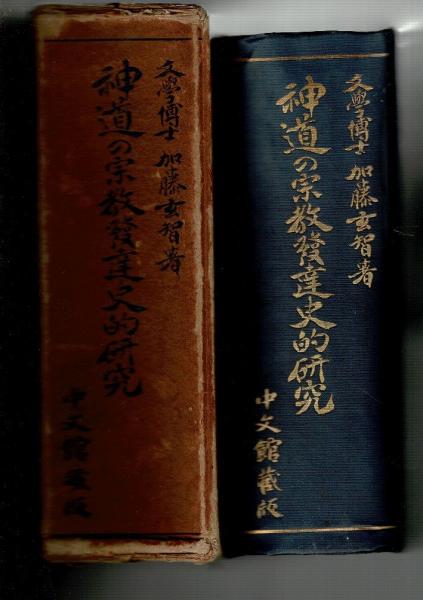 文學博士 加藤玄智著
神道の宗教發達史的研究
中文館蔵版
文學博士 加藤玄智著
神道の宗教發達史的研究
中文館蔵版